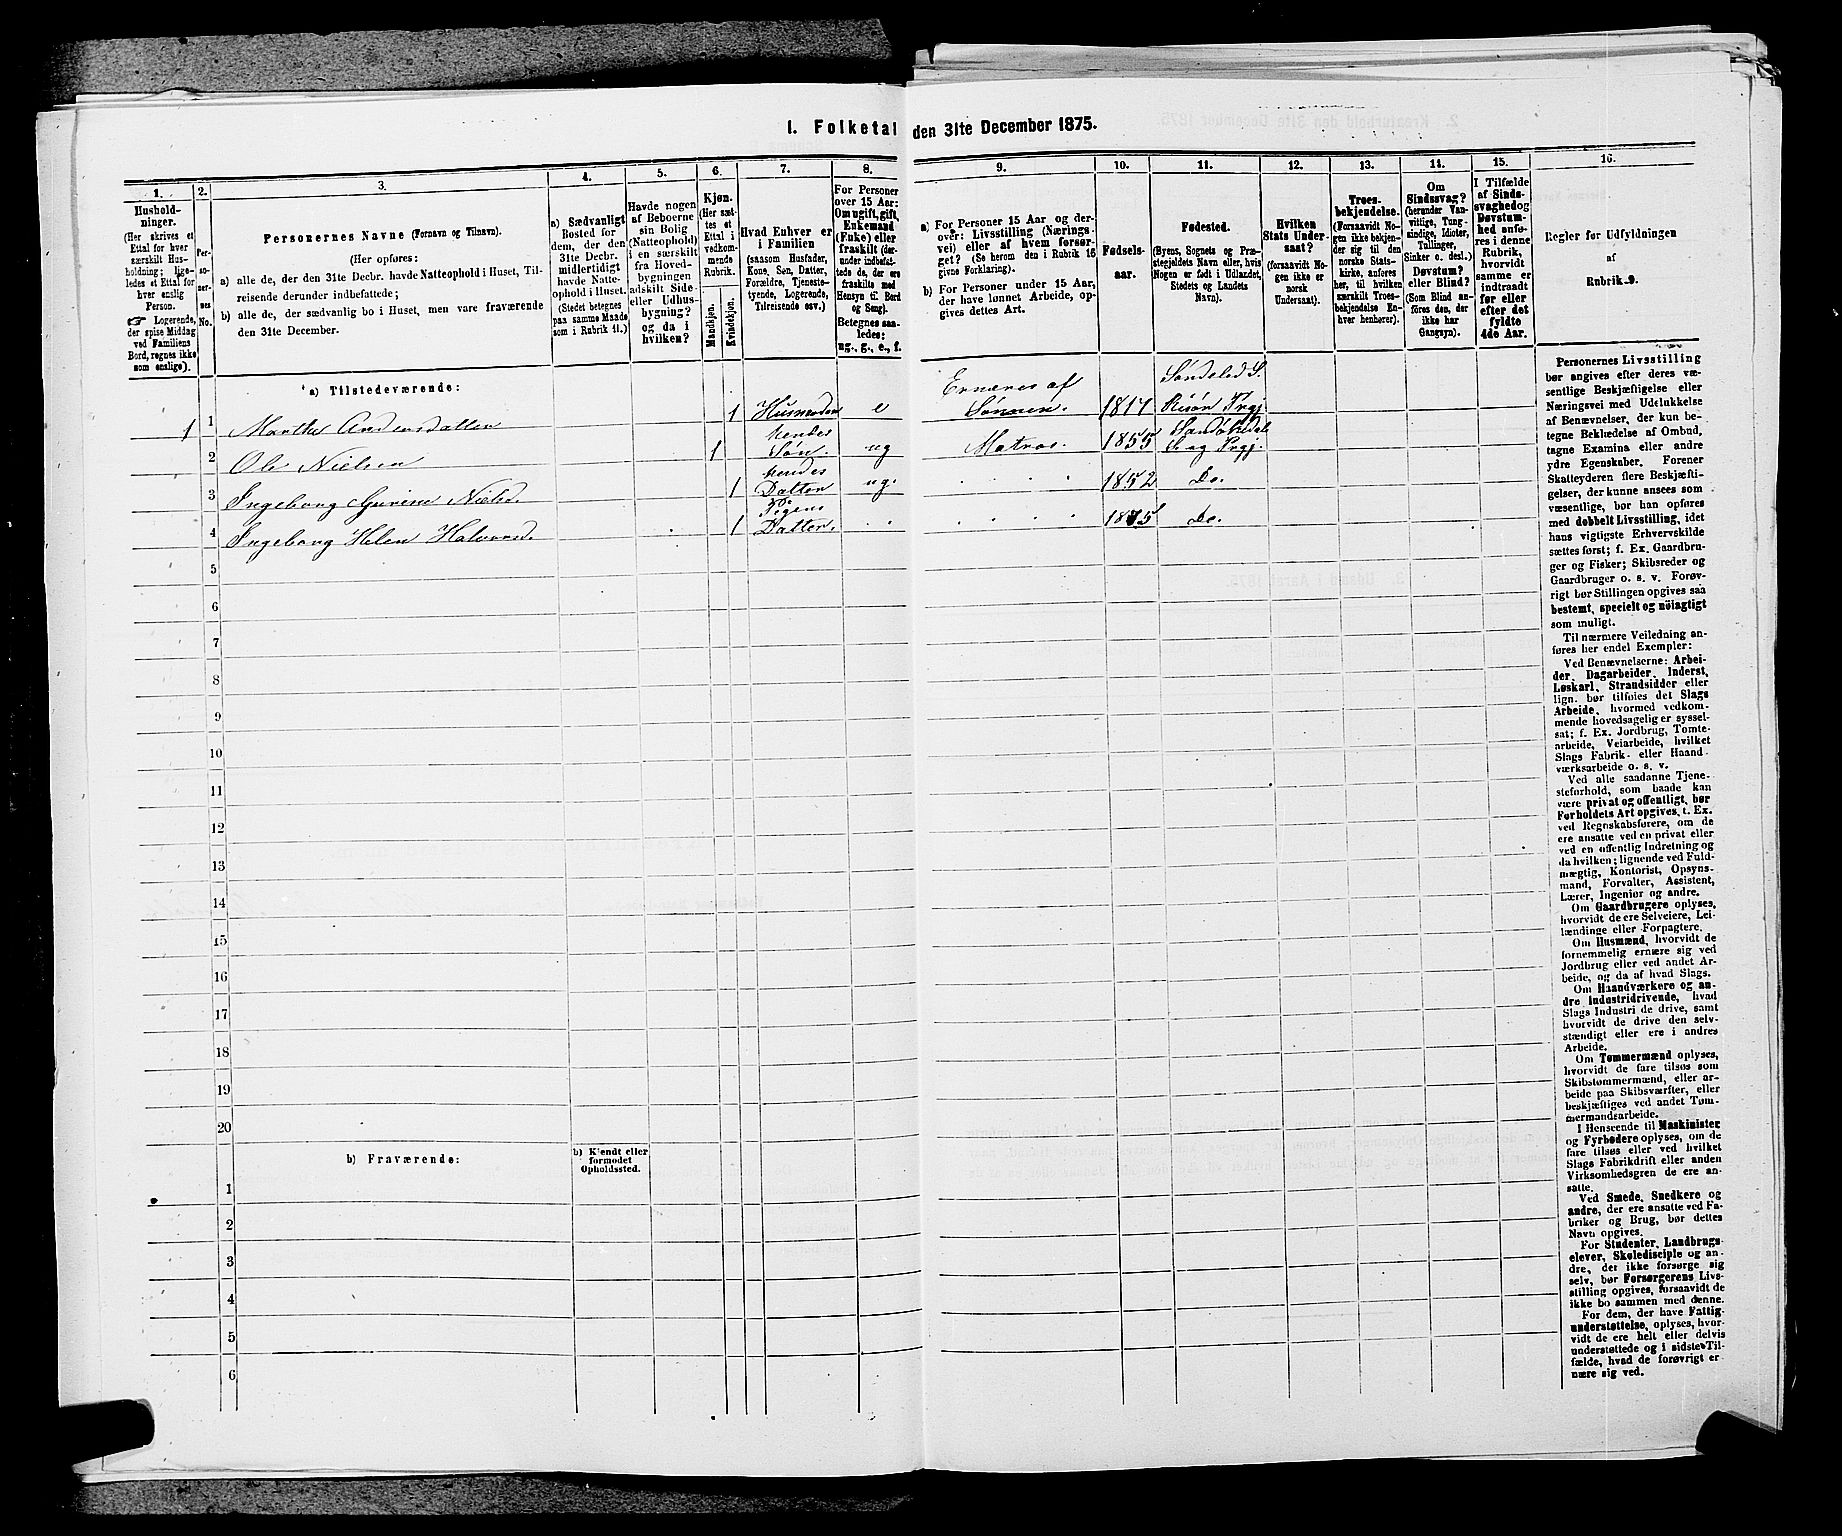 1. Folketal den 31te December 1875.
1.
Hushold-
ninger.
(Her skrives et
Ettal for hver
særskilt Hus-
holdning; lige-
ledes et Ettal for
hver enslig
Person.
☞ Logerende,
der spise Middag
ved Familiens
Bord, regnes ikke
som enslige).
2.
Per-
so-
ner-
nes
No.
3.
Personernes Navne (Fornavn og Tilnavn).
(Her opføres:
a) alle de, der den 31te Decbr. havde Natteophold i Huset, Til-
reisende derunder indbefattede;
b) alle de, der sædvanlig bo i Huset, men vare fraværende
den 31te December.
4.
a) Sædvanligt
Bosted for
dem, der den
31te Decbr.
midlertidigt
havde Natte-
ophold i Huset.
(Stedet betegnes
paa samme Maade
som i Rubrik 11.)
5.
Havde nogen
af Beboerne
sin Bolig
(Natteophold)
i en særskilt
fra Hoved-
bygningen
adskilt Side-
eller Udhus-
bygning?
og da i
hvilken?
6.
Kjøn.
(Her sæt-
tes et
Ettal i
vedkom-
mende
Rubrik.
Mandkjøn.
Kvindekjøn.
7.
Hvad Enhver er
i Familien
(saasom Husfader,
Kone, Søn, Datter,
Forældre, Tjeneste-
tyende, Logerende,
Tilreisende osv.)
8.
For Personer
over 15 Aar:
Om ugift, gift,
Enkemand
(Enke) eller
fraskilt (der-
under indbefat-
tede de, der ere
fraskilte med
Hensyn til Bord
og Seng).
Betegnes saa-
ledes:
ug., g., e., f.
9.
a) For Personer 15 Aar og der-
over: Livsstilling (Nærings-
vei) eller af hvem forsør-
get? (Se herom den i Rubrik 16
givne Forklaring).
b) For Personer under 15 Aar,
der have lønnet Arbeide, op-
gives dettes Art.
10.
Fødsels-
aar.
11.
Fødested.
(Byens, Sognets og Præ-
stegjeldets Navn eller, hvis
Nogen er født i Udlandet,
Stedets og Landets
Navn).
12.
Hvilken
Stats Under-
saat?
(forsaavidt No-
gen ikke er
norsk
Undersaat).
13.
Troes-
bekjendelse.
(Forsaavidt No-
gen ikke bekjen-
der sig til den
norske Stats-
kirke, anføres
her, til hvilken
særskilt Troes-
bekjendelse En-
hver henhører).
14.
Om
Sindssvag?
(herunder Van-
vittige, Tung-
sindige, Idioter,
Tullinger,
Sinker o. desl.)
Døvstum?
eller Blind?
(Som Blind an-
føres den, der
ikke har
Gangsyn).
15.
I Tilfælde
af Sinds-
svaghed og
Døvstum-
hed anfø-
res i denne
Rubrik,
hvorvidt
samme er
indtraadt
før eller
efter det
fyldte
4de Aar.
16.
Regler for Udfyldningen
af
Rubrik 9.
a) Tilstedeværende:
1 1 Marthe Andersdatter 1 Husmoder e Ernæres af Sønnen. 1817 Søndeled S. Risør Prgj
2 Ole Nielsen 1 hendes Søn. ug Matros. 1855 Sandøkedal Sog Prgj.
3 Ingeborg Gurine Nielsd. 1 hendes Datter ug. 1852 Do.
4 Ingeborg Helen Halvorsd. 1 Pigens Datter. 1875 Do.
5
6
7
8
9
10
11
12
13
14
15
16
17
18
19
20
b) Fraværende:
b) Kjendt eller
formodet
Opholdssted.
1
2
3
4
5
6
Personernes Livsstilling
bør angives efter deres væ-
sentlige Beskjæftigelse eller
Næringsvei med Udelukkelse
af Benævnelser, der kun be-
tegne Beklædelse af Ombud,
tagne Examina eller andre
ydre Egenskaber. Forener
Skatteyderen flere Beskjæfti-
gelser, der kunne ansees som
væsentlige, bør han opføres
med dobbelt Livsstilling, idet
hans vigtigste Erhvervskilde
sættes først; f. Ex. Gaardbru-
ger og Fisker; Skibsreder og
Gaardbruger o. s. v. Forøv-
rigt bør Stillingen opgives saa
bestemt, specielt og nöiagtigt
som muligt.
Til nærmere Veiledning an-
føres her endel Exempler:
Ved Benævnelserne: Arbei-
der, Dagarbeider, Inderst,
Løskarl, Strandsidder eller
lign. bør tilføies det Slags
Arbeide, hvormed vedkom-
mende hovedsagelig er syssel-
sat; f. Ex. Jordbrug, Tomte-
arbeide, Veiarbeide, hvilket
Slags Fabrik- eller Haand-
værksarbeide o. s. v.
Ved alle saadanne Tjene-
steforhold, som baade kan
være privat og offentligt, bør
Forholdets Art opgives, t. Ex.
ved Regnskabsførere, om de
ere ansatte ved en privat eller
ved en offentlig Indretning og
da hvilken; lignende ved Fuld-
mægtig, Kontorist, Opsyns-
mand, Forvalter, Assistent,
Lærer, Ingeniør og andre.
Om Gaardbrugere oplyses,
hvorvidt de ere Selveiere, Lei-
lændinge eller Forpagtere.
Om Husmænd, hvorvidt de
fornemmelig ernære sig ved
Jordbrug eller ved andet Ar-
beide, og da af hvad Slags.
Om Haandværkere og an-
dre Industridrivende, hvad
Slags Industri de drive, samt
hvorvidt de drive den selv-
stændigt eller ere i andres
Arbeide.
Om Tømmermænd oplyses,
hvorvidt de fare tilsøs som
Skibstømmermænd, eller ar-
beide paa Skibsværfter, eller
beskjæftiges ved andet Tøm-
mermandsarbeide.
I Henseende til Maskinister
og Fyrbødere oplyses, om de
fare tilsøs eller ved hvilket
Slags Fabrikdrift eller anden
Virksomhedsgren de ere an-
satte.
Ved Smede, Snedkere og
andre, der ere ansatte ved Fa-
briker og Brug, bør dettes
Navn opgives.
For Studenter, Landbrugs-
elever, Skoledisciple og an-
dre, der ikke forsørge sig
selv, bør Forsørgerens Livs-
stilling opgives, forsaavidt de
ikke bo sammen med denne.
For dem, der have Fattig-
understøttelse, oplyses, hvor-
vidt de ere helt eller delvis
understøttede og i sidste Til-
fælde, hvad de forøvrigt er-
nære sig ved.